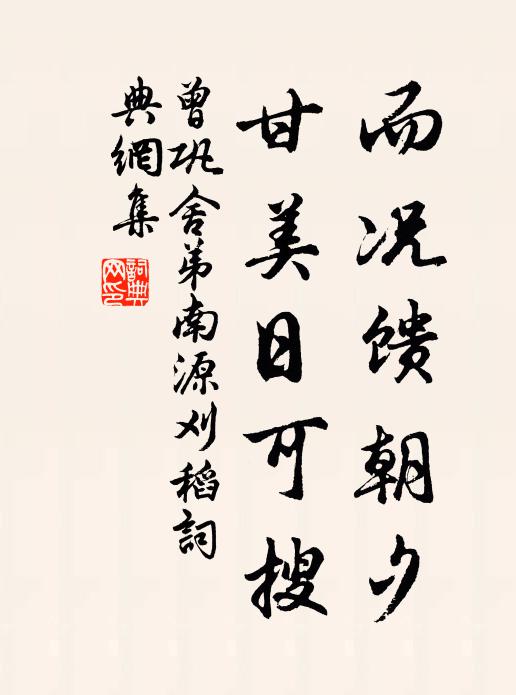 而况馈朝夕
甘美日可搜
曾巩舍弟南源刈稻詞
典網集
詞典
网印